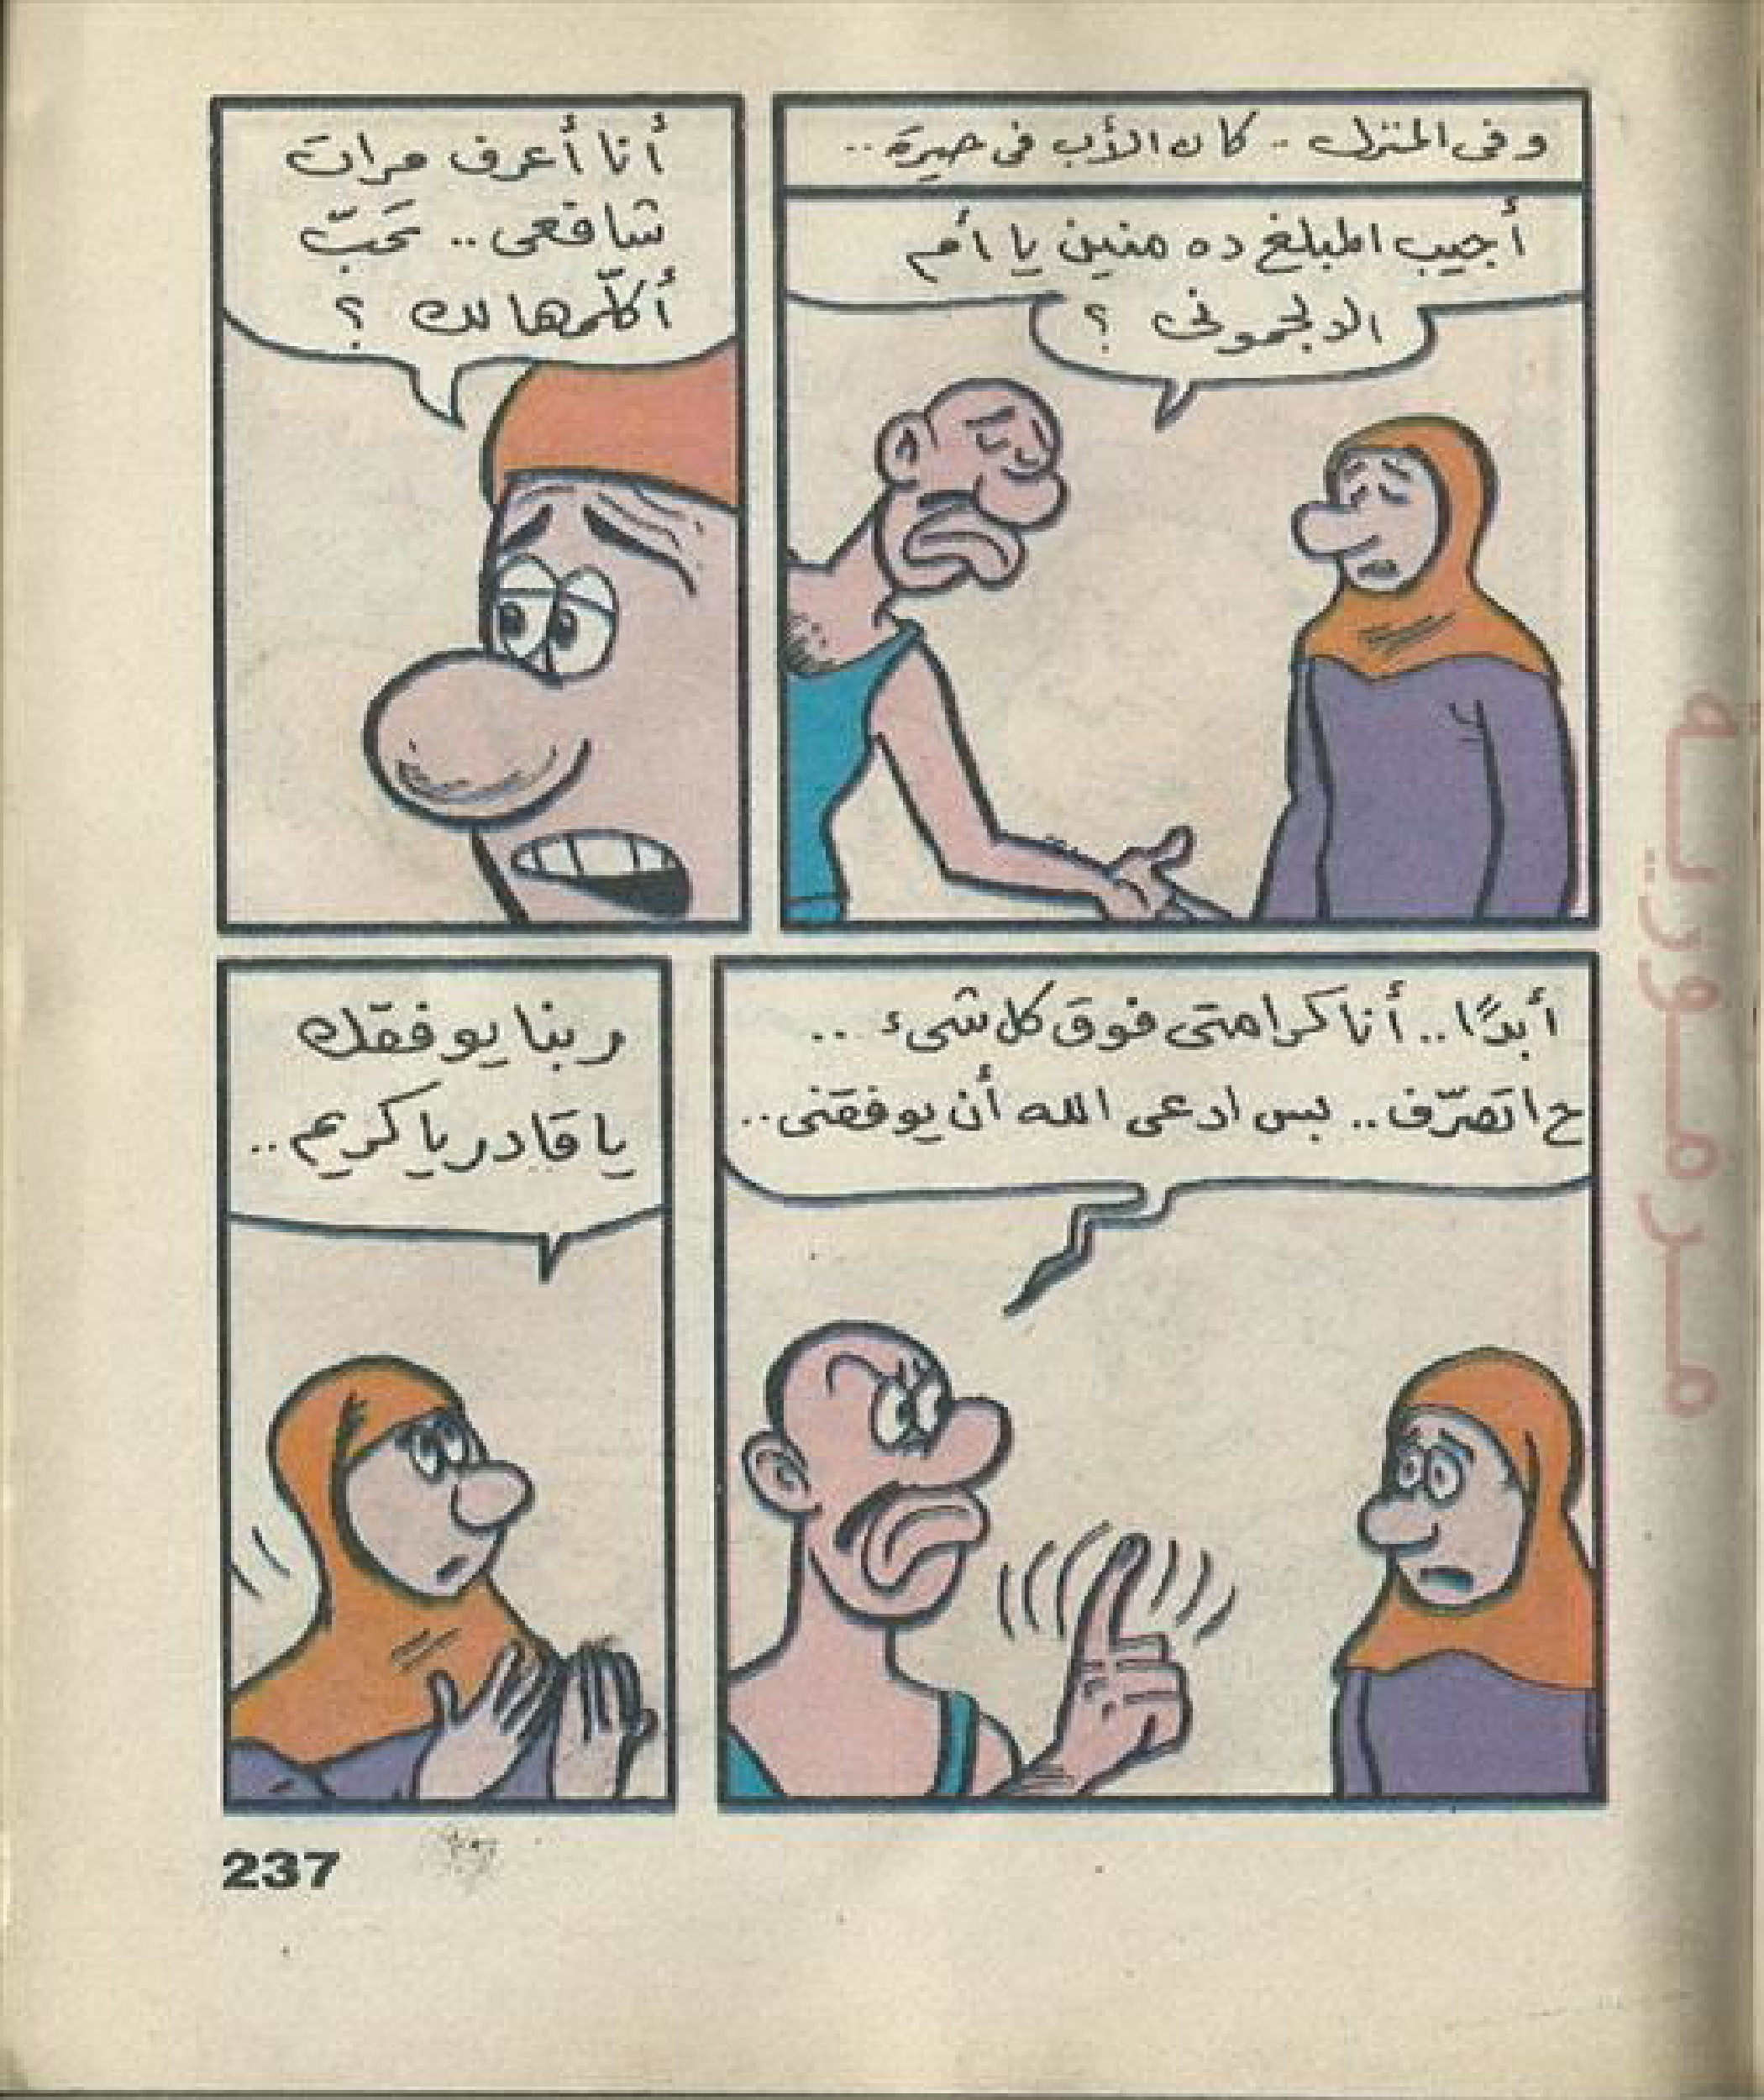 وفى المنزل .. كان الأب فى حيرة ..
أجيب المبلغ ده منين يا أم
الدلجمونى ؟
أنا أعرف مرات
شافعى .. تحبّ
أكلّمها لك ؟
أبدًا .. أنا كرامتى فوق كل شىء ..
ح اتصرّف .. بس ادعى الله أن يوفقنى ..
ربنا يوفقك
يا قادر يا كريم ..
237